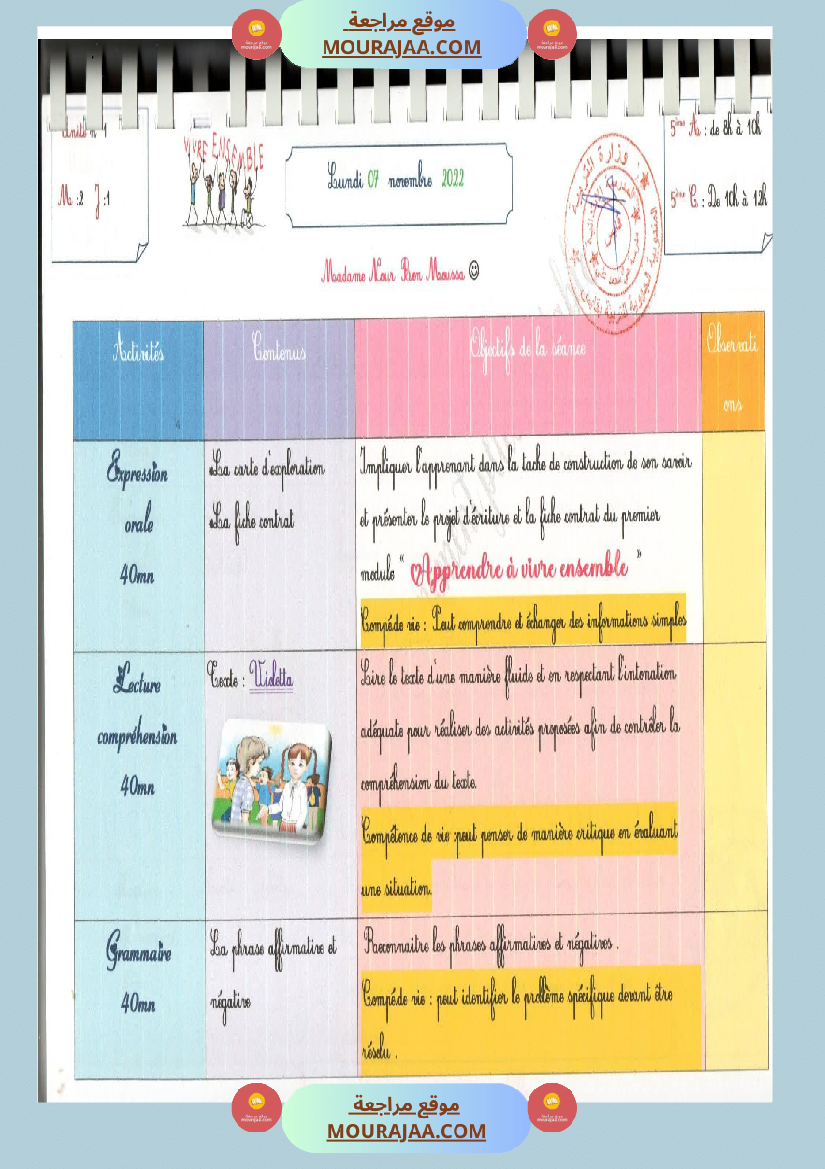 موقع مراجعة
MOURAJAA.COM
Unité n° 1
M :2 J :1
VIVRE ENSEMBLE
Lundi 07 novembre 2022
5ème A : de 8h à 10h
5ème C : De 10h à 12h
Madame Nour Ben Moussa
Activités
Contenus
Objectifs de la séance
Observati
ons
Expression
orale
40mn
La carte d'exploration
La fiche contrat
Impliquer l'apprenant dans la tache de construction de son savoir
et présenter le projet d'écriture et la fiche contrat du premier
module " Apprendre à vivre ensemble "
Compéde vie : Peut comprendre et échanger des informations simples
Lecture
compréhension
40mn
Texte : Violetta
Lire le texte d'une manière fluide et en respectant l'intonation
adéquate pour réaliser des activités proposées afin de contrôler la
compréhension du texte.
Compétence de vie :peut penser de manière critique en évaluant
une situation.
Grammaire
40mn
La phrase affirmative et
négative
Reconnaitre les phrases affirmatives et négatives .
Compéde vie : peut identifier le problème spécifique devant être
résolu .
موقع مراجعة
MOURAJAA.COM